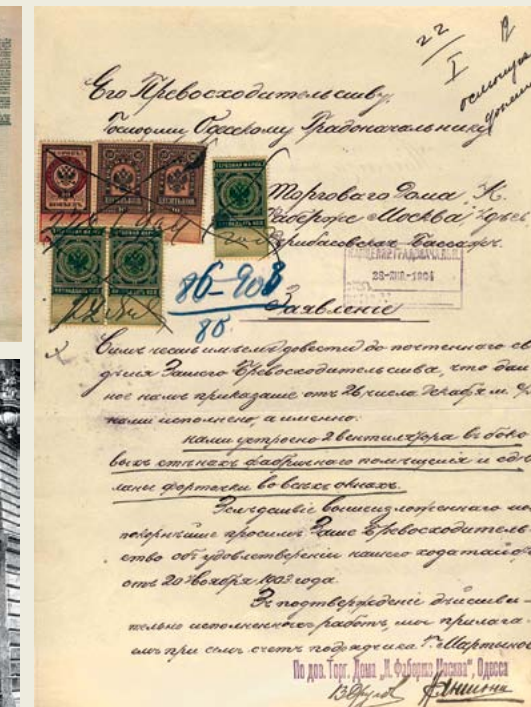 22
I
Его Превосходительству
Господину Одесскому Градоначальнику
Торговаго Дома К.
Фаберже Москва, здѣсь,
Дерибасовская Пассажъ.
28-ЯНВ.-1904
86-903
86
Заявленіе
Симъ честь имѣемъ довести до почтеннаго свѣ
дѣнія Вашего Превосходительства, что дан
ное намъ приказаніе отъ 26 числа Декабря м. г.
нами исполнено, а именно:
нами устроено 2 вентилятора въ боко
выхъ стѣнахъ фабричнаго помѣщенія и сдѣ
ланы форточки во всѣхъ окнахъ.
Вслѣдствіе вышеизложеннаго мы
покорнѣйше просимъ Ваше Превосходитель
ство объ удовлетвореніи нашего ходатайс
отъ 20 Ноября 1903 года.
Въ подтвержденіе дѣйстви-
тельно исполненныхъ работъ, мы прилага-
емъ при семъ счетъ подрядчика Г. Мартынов
По дов. Торг. Дома „К. Фаберже Москва", Одесса